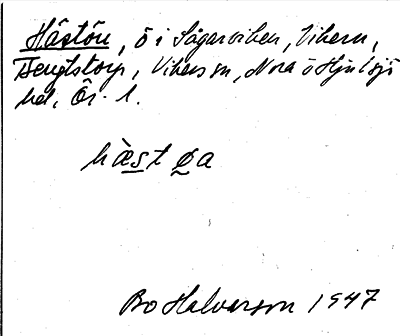 Hästön, ö i Sågarviken, Vikern,
Bengtstorp, Vikers sn, Nora o Hjulsjö
hd, Ör. l.
hæ̀st øa
Bo Halvarson 1947